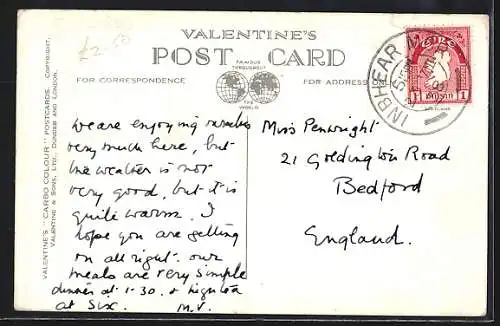 £2.50
VALENTINE'S
POST CARD
FAMOUS THROUGHOUT
THE WORLD
FOR CORRESPONDENCE
FOR ADDRESS ONLY
VALENTINE'S "CARBO COLOUR" POSTCARDS. COPYRIGHT.
VALENTINE & SONS, LTD., DUNDEE AND LONDON.
we are enjoying ourselves
very much here, but
the weather is not
very good, but it is
quite warm. I
hope you are getting
on all right. our
meals are very simple
dinner at 1-30. & high tea
at six. M.V.
Miss Penwright
21 Goldington Road
Bedford
England.
INBHEAR M
éire
1 PINGIN 1